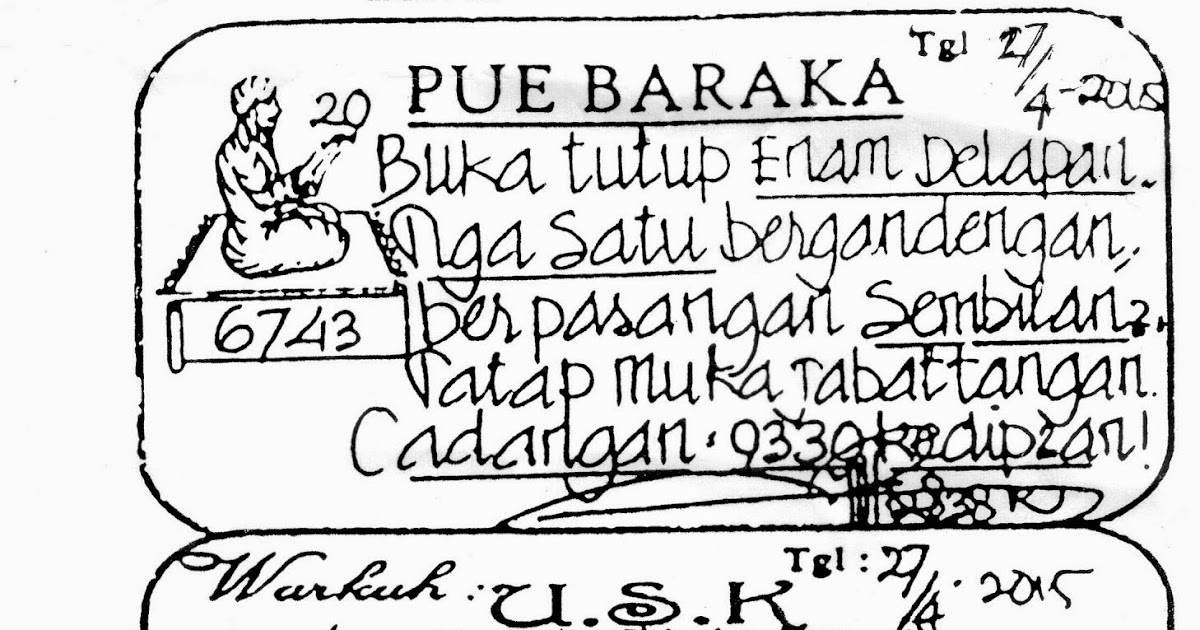 Tgl 27/4-2015
PUE BARAKA
20
Buka tutup Enam Delapan.
Nga Satu bergandengan,.
berpasangan Sembilan2.
6743
Tatap muka Tabattangan.
Cadangan: 9330 kedip2an!
Warkuh: U.S.K
Tgl: 27/4. 2015